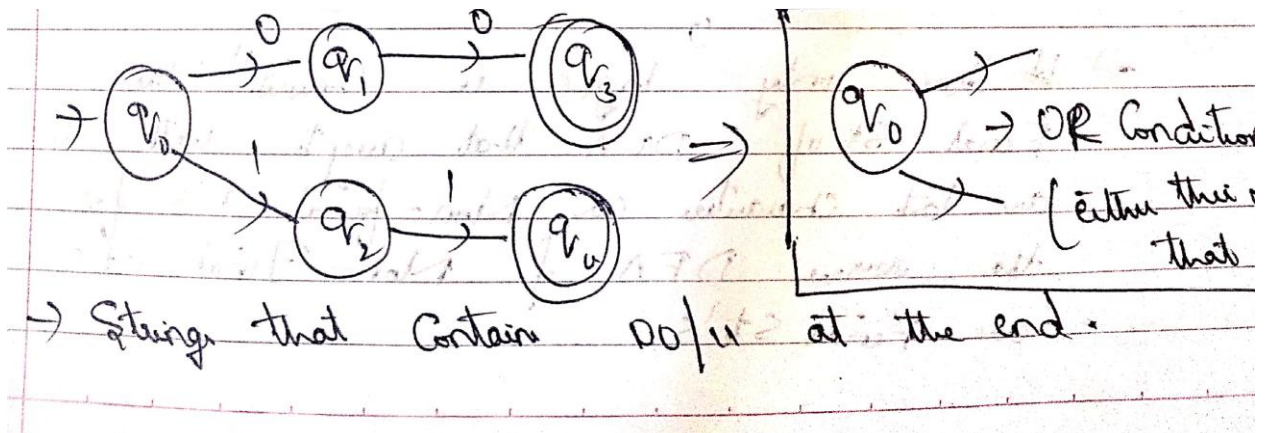 0 0
→ q0 q1 q3
1 1
q2 q4
⇒
q0
→ OR Condition
(either this
that
→ Strings that contain 00/11 at the end.